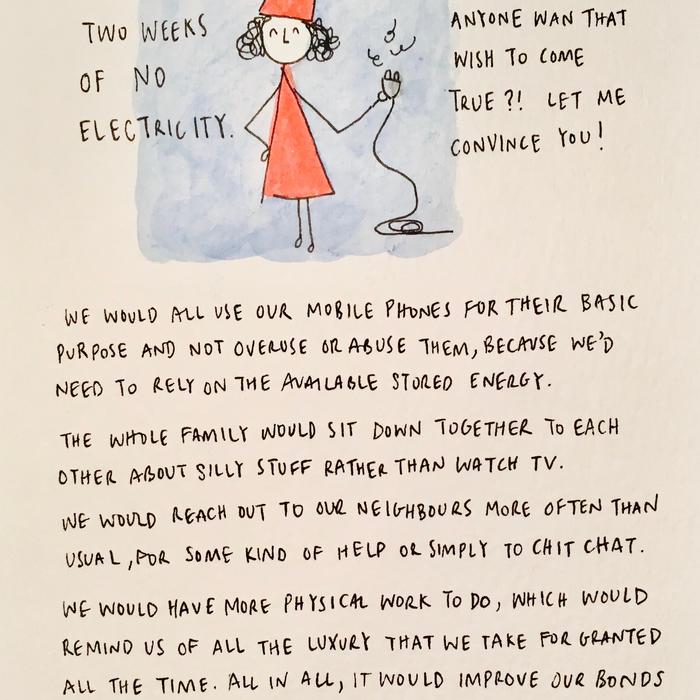 TWO WEEKS
OF NO
ELECTRICITY.
ANYONE WAN THAT
WISH TO COME
TRUE?! LET ME
CONVINCE YOU!
WE WOULD ALL USE OUR MOBILE PHONES FOR THEIR BASIC
PURPOSE AND NOT OVERUSE OR ABUSE THEM, BECAUSE WE'D
NEED TO RELY ON THE AVAILABLE STORED ENERGY.
THE WHOLE FAMILY WOULD SIT DOWN TOGETHER TO EACH
OTHER ABOUT SILLY STUFF RATHER THAN WATCH TV.
WE WOULD REACH OUT TO OUR NEIGHBOURS MORE OFTEN THAN
USUAL, FOR SOME KIND OF HELP OR SIMPLY TO CHIT CHAT.
WE WOULD HAVE MORE PHYSICAL WORK TO DO, WHICH WOULD
REMIND US OF ALL THE LUXURY THAT WE TAKE FOR GRANTED
ALL THE TIME. ALL IN ALL, IT WOULD IMPROVE OUR BONDS